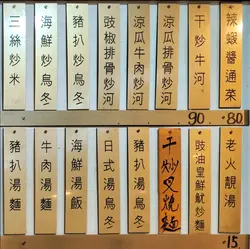 辣蝦醬通菜
80
干炒牛河
90
涼瓜排骨炒河
涼瓜牛肉炒河
豉椒排骨炒河
豬扒炒烏冬
海鮮炒烏冬
三絲炒米
老火靚湯
15
豉油皇鮮魷炒麵
干炒叉燒麵
豬扒湯烏冬
日式湯烏冬
海鮮湯飯
牛肉湯麵
豬扒湯麵